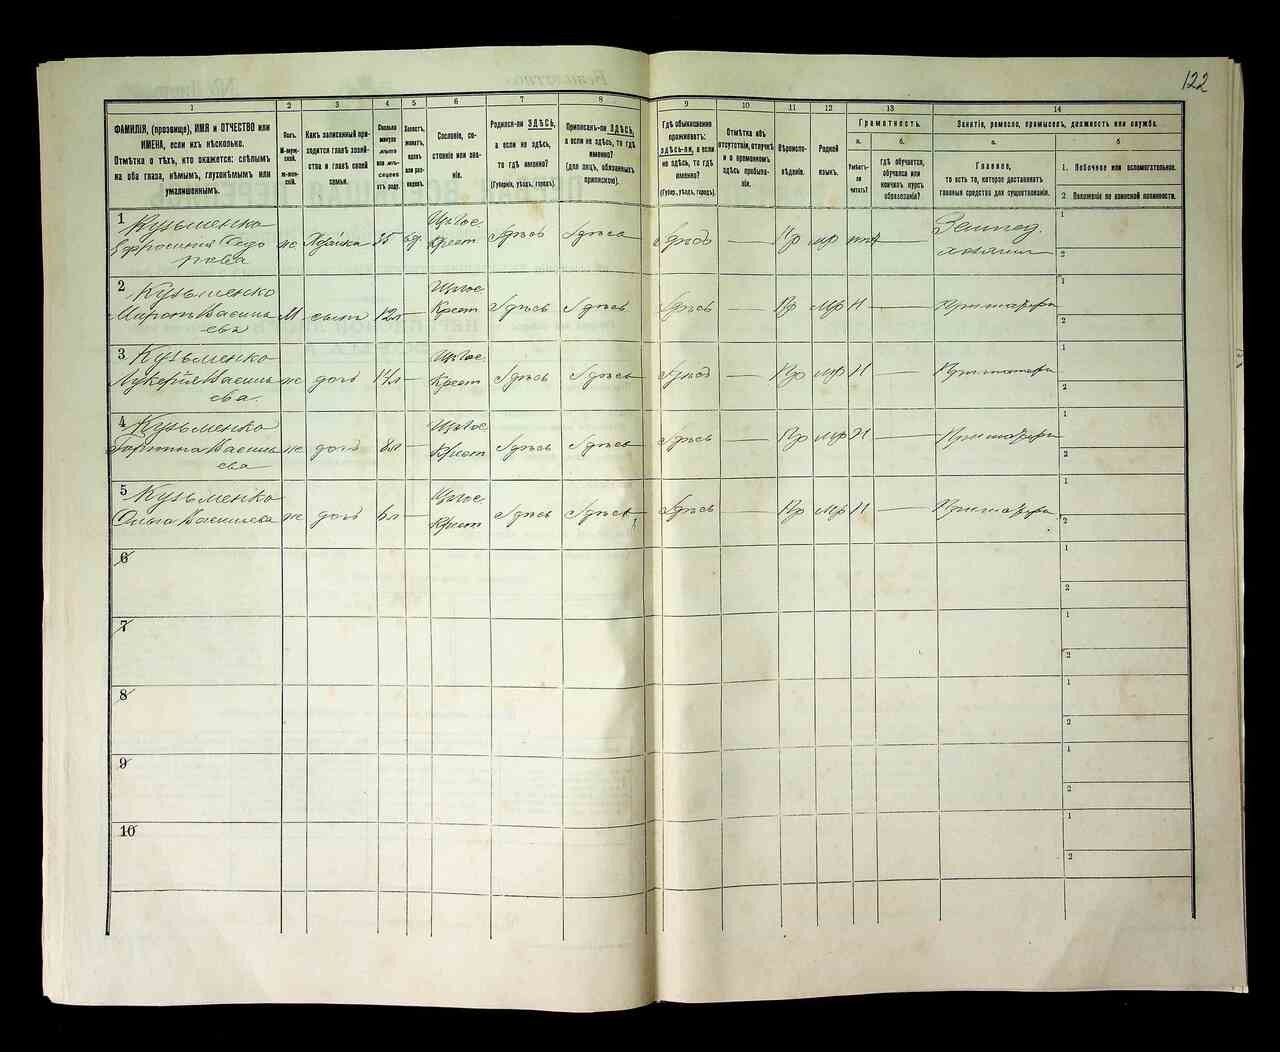 122
1
2
3
4
5
6
7
8
9
10
11
12
13
14
ФАМИЛІЯ, (прозвище), ИМЯ и ОТЧЕСТВО или ИМЕНА, если ихъ нѣсколько.
Отмѣтка о тѣхъ, кто окажется: слѣпымъ на оба глаза, нѣмымъ, глухонѣмымъ или умалишеннымъ.
Полъ.
М-мужской.
Ж-женскій.
Какъ записанный приходится главѣ хозяйства и главѣ своей семьи.
Сколько минуло лѣтъ или мѣсяцевъ отъ роду.
Холостъ, женатъ, вдовъ или разведенъ.
Сословіе, состояніе или званіе.
Родился-ли ЗДѢСЬ,
а если не здѣсь,
то гдѣ именно?
(Губернія, уѣздъ, городъ).
Приписанъ-ли ЗДѢСЬ,
а если не здѣсь, то гдѣ
именно?
(для лицъ, обязанныхъ припискою).
Гдѣ обыкновенно
проживаетъ:
ЗДѢСЬ-ЛИ, а если
не здѣсь, то гдѣ
именно?
(Губер., уѣздъ, городъ).
Отмѣтка объ
отсутствіи, отлучкѣ
и о временномъ
здѣсь пребываніи.
Вѣроисповѣданіе.
Родной языкъ.
Грамотность.
а.
б.
Умѣетъ-ли читать?
гдѣ обучается,
обучался или
кончилъ курсъ
образованія?
Занятіе, ремесло, промыселъ, должность или служба.
а.
б
Главное,
то есть то, которое доставляетъ
главныя средства для существованія.
1. Побочное или вспомогательное.
2. Положеніе по воинской повинности.
1 Кузьменко
Ефросинія Федорова ж Хозяйка 35 вд. Крест Здѣсь Здѣсь Здѣсь — Пр мр — Землед. хозяйка
2 Кузьменко
Миронъ Васильевъ М сынъ 12л — Крест Здѣсь Здѣсь Здѣсь — Пр мр Н —
3 Кузьменко
Лукерія Васильева ж дочь — Крест Здѣсь Здѣсь Здѣсь — Пр мр Н —
4 Кузьменко
Васильева ж дочь 8л — Крест Здѣсь Здѣсь Здѣсь — Пр мр Н —
5 Кузьменко
Ольга Васильева ж дочь 6л — Крест Здѣсь Здѣсь Здѣсь — Пр мр Н —
6
7
8
9
10